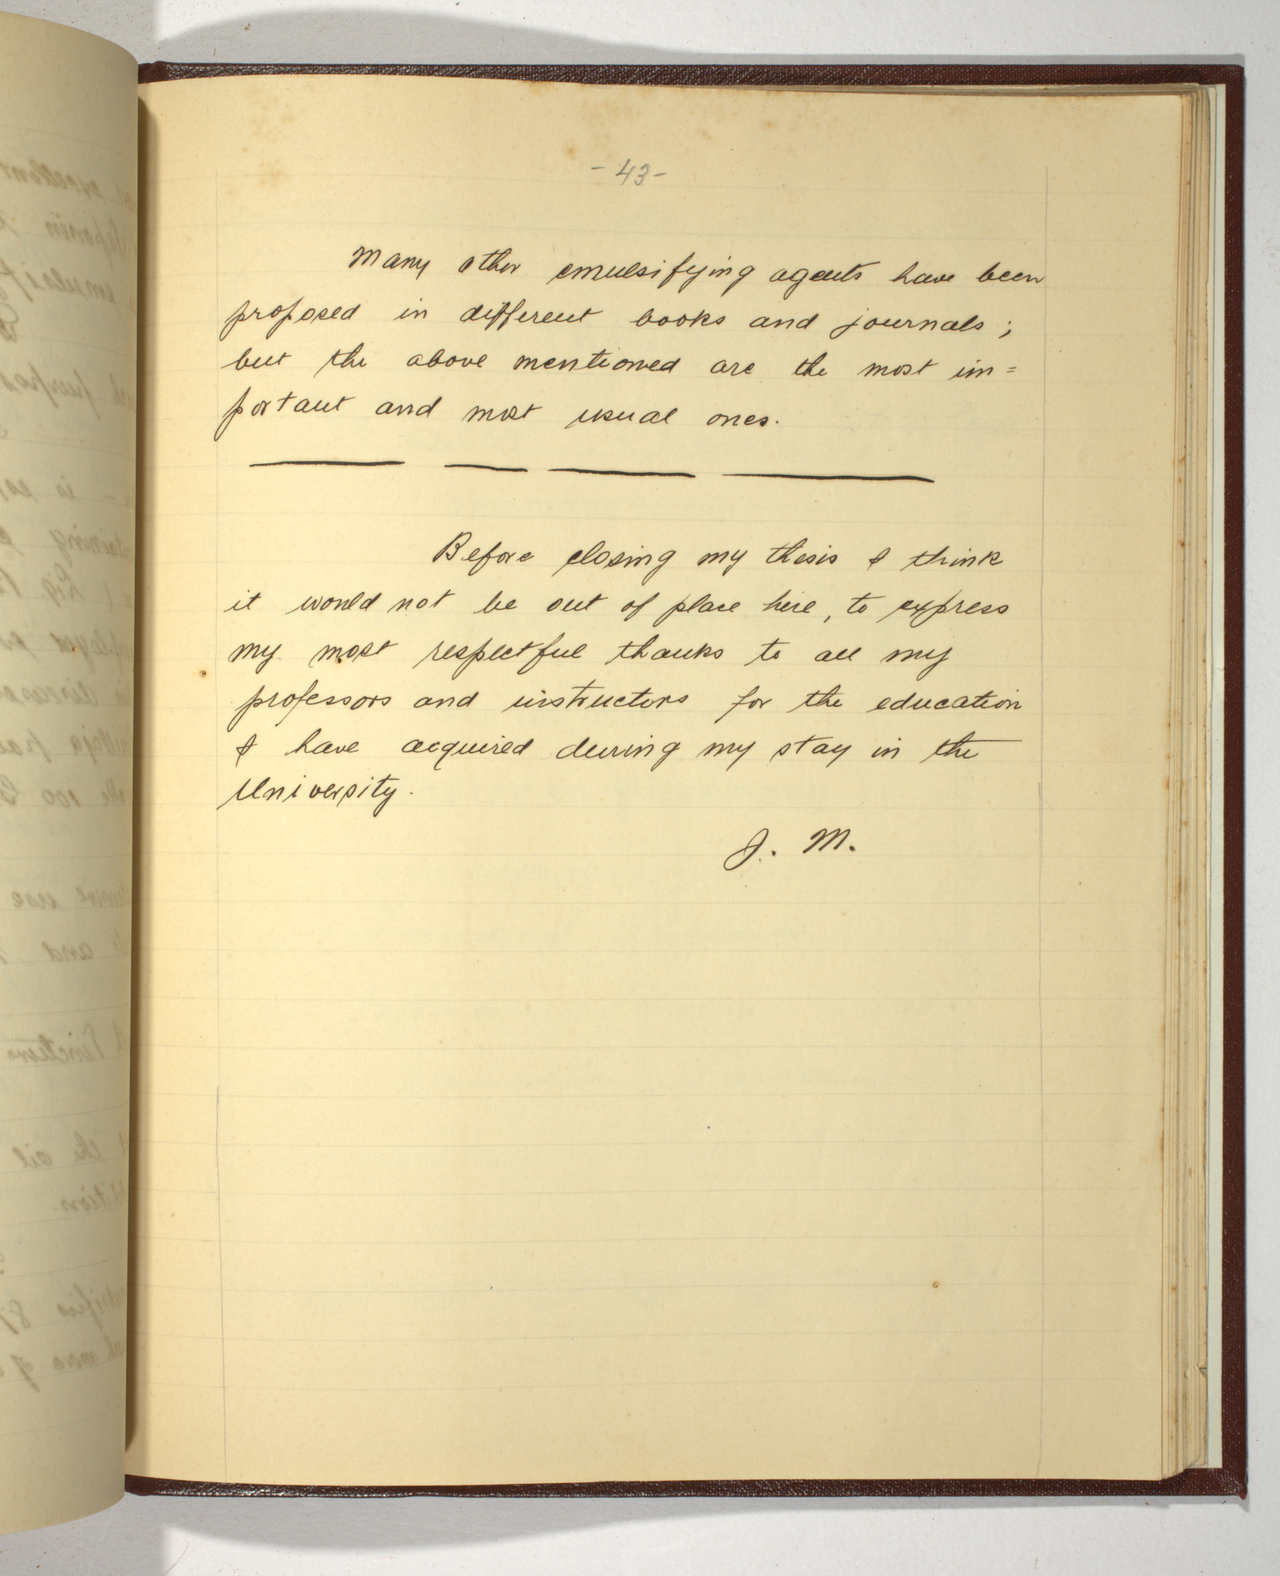 - 43 -
Many other emulsifying agents have been
proposed in different books and journals;
but the above mentioned are the most im=
portant and most usual ones.
Before closing my thesis I think
it would not be out of place here, to express
my most respectful thanks to all my
professors and instructors for the education
I have acquired during my stay in the
University.
J. M.